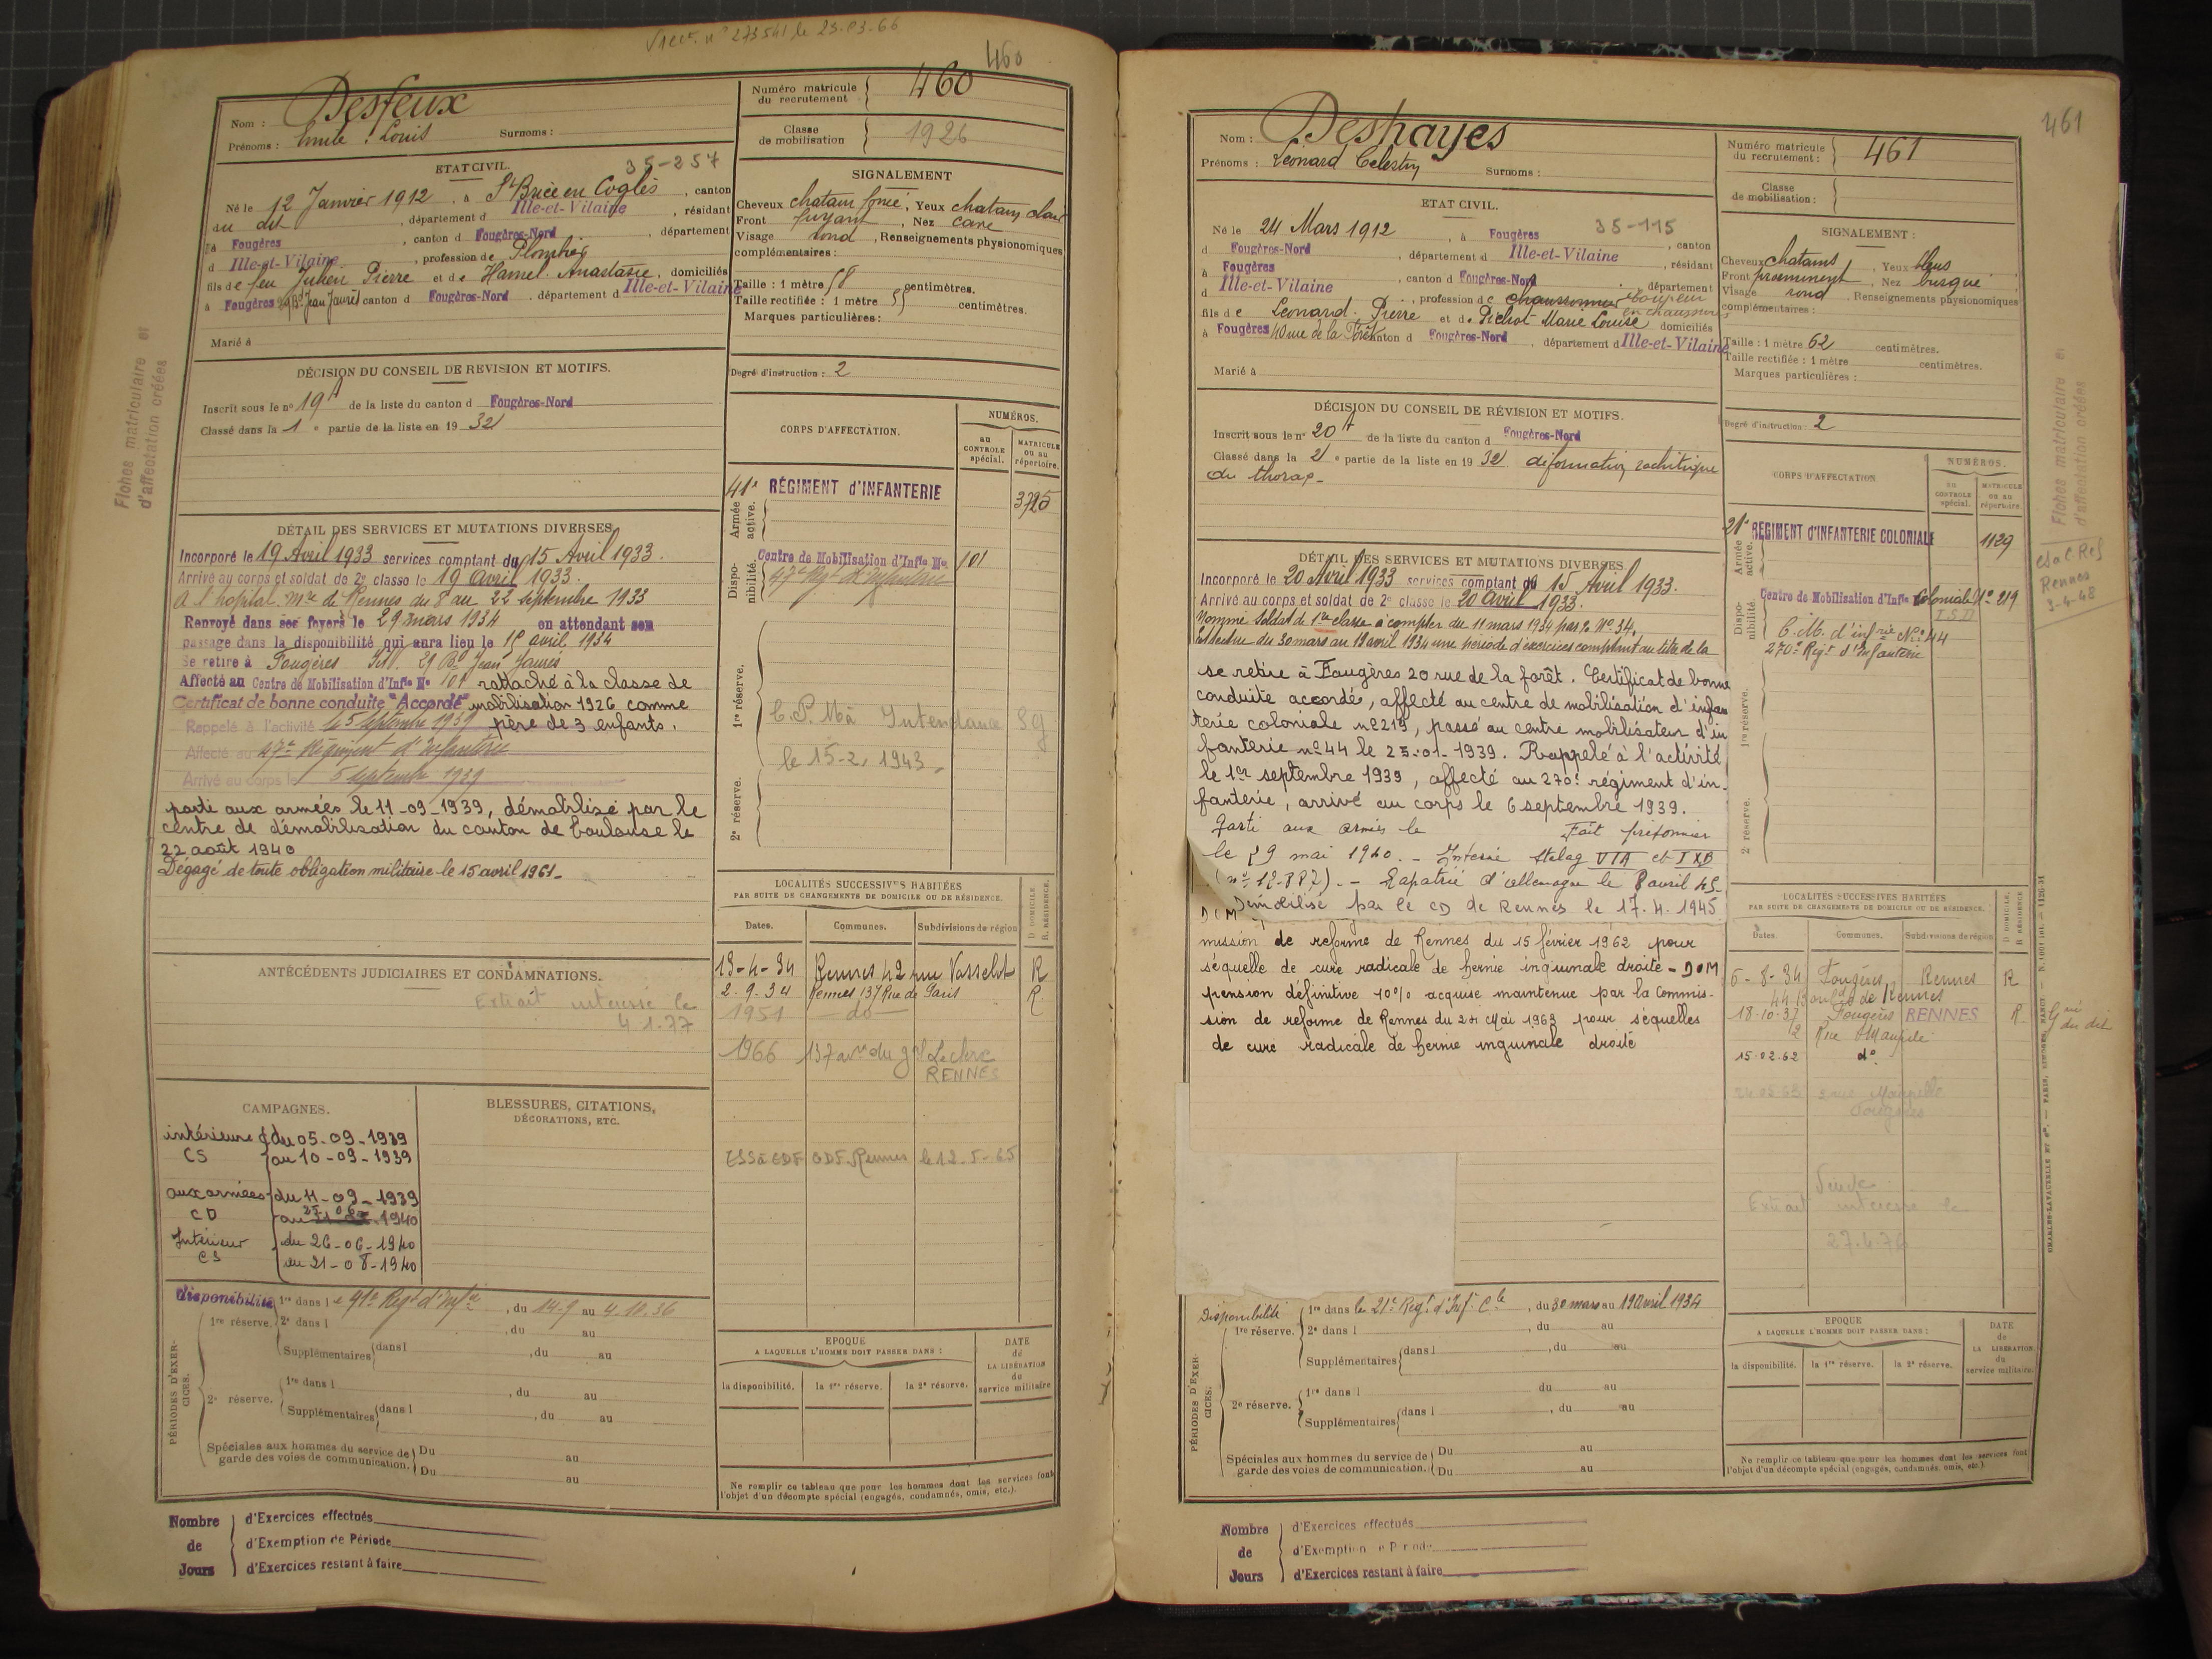 460
Nom : Desfeux
Prénoms : Emile Louis Surnoms :
Numéro matricule du recrutement 460
Classe de mobilisation 1926
ETAT CIVIL. 35-257
Né le 12 Janvier 1912, à St Brice en Coglès, canton
du dit, département d Ille-et-Vilaine, résidant
à Fougères, canton d Fougères-Nord, département
d Ille-et-Vilaine, profession de Plombier
fils de feu Julien Pierre et de Hamel Anastasie, domiciliés
à Fougères 29 Bd Jean Jaurès canton d Fougères-Nord, département d Ille-et-Vilaine
Marié à
SIGNALEMENT
Cheveux chatain foncé, Yeux chatain clair
Front fuyant, Nez cave
Visage rond, Renseignements physionomiques
complémentaires :
Taille : 1 mètre 58 centimètres.
Taille rectifiée : 1 mètre 55 centimètres.
Marques particulières :
Degré d'instruction : 2
DÉCISION DU CONSEIL DE REVISION ET MOTIFS.
Inscrit sous le n° 19 A de la liste du canton d Fougères-Nord
Classé dans la 1e partie de la liste en 1932
CORPS D'AFFECTATION.
NUMÉROS.
au CONTROLE spécial.
MATRICULE ou au répertoire.
Armée active.
41e RÉGIMENT d'INFANTERIE 3725
Disponibilité.
Centre de Mobilisation d'Infie No 101
47e Rgt d'Infanterie
1re réserve.
C.P. Mā Intendance Sg
le 15-2-1943
2e réserve.
DÉTAIL DES SERVICES ET MUTATIONS DIVERSES.
Incorporé le 19 Avril 1933 services comptant du 15 Avril 1933.
Arrivé au corps et soldat de 2e classe le 19 Avril 1933.
A l'hopital mre de Rennes du 8 au 22 septembre 1933
Renvoyé dans ses foyers le 29 mars 1934 en attendant son
passage dans la disponibilité qui aura lieu le 15 avril 1934
Se retire à Fougères I et V. 29 Bd Jean Jaurès
Affecté au Centre de Mobilisation d'Infie No 101 rattaché à la classe de
Certificat de bonne conduite "Accordé" mobilisation 1926 comme
Rappelé à l'activité le 5 septembre 1939 père de 3 enfants.
Affecté au 47e Régiment d'Infanterie
Arrivé au corps le 5 septembre 1939
parti aux armées le 11-09-1939, démobilisé par le
centre de démobilisation du canton de Toulouse le
22 août 1940
Dégagé de toute obligation militaire le 15 avril 1961.
LOCALITÉS SUCCESSIVES HABITÉES
PAR SUITE DE CHANGEMENTS DE DOMICILE OU DE RÉSIDENCE.
Dates. Communes. Subdivisions de région D DOMICILE. R. RÉSIDENCE.
13-4-34 Rennes 42 rue Vasselot R
2-9-34 Rennes 137 Rue de Paris R.
1951 do
1966 137 av du gal Leclerc
RENNES
ESSā EDF ODF Rennes le 12-5-65
ANTÉCÉDENTS JUDICIAIRES ET CONDAMNATIONS.
Extrait interessé le
4.1.77
CAMPAGNES.
BLESSURES, CITATIONS, DÉCORATIONS, ETC.
intérieure du 05-09-1939
CS au 10-09-1939
aux armées du 11-09-1939
CD au 25 06 1940
Intérieur du 26-06-1940
CS au 21-08-1940
PÉRIODES D'EXERCICES.
disponibilité 1re dans le 41e Regt d'Infie, du 14-9 au 4-10-36
1re réserve. 2e dans l , du au
Supplémentaires dans l , du au
2e réserve. 1re dans l , du au
Supplémentaires dans l , du au
Spéciales aux hommes du service de garde des voies de communication. Du au
Du au
EPOQUE A LAQUELLE L'HOMME DOIT PASSER DANS :
la disponibilité. la 1re réserve. la 2e réserve.
DATE de LA LIBÉRATION du service militaire
Ne remplir ce tableau que pour les hommes dont les services font
l'objet d'un décompte spécial (engagés, condamnés, omis, etc.).
Nombre de Jours
d'Exercices effectués
d'Exemption de Période
d'Exercices restant à faire
Fiches matriculaire et
d'affectation créées
461
Nom : Deshayes
Prénoms : Léonard Celestin Surnoms :
Numéro matricule du recrutement : 461
Classe de mobilisation :
ETAT CIVIL. 35-115
Né le 24 Mars 1912, à Fougères, canton
d Fougères-Nord, département d Ille-et-Vilaine, résidant
à Fougères, canton d Fougères-Nord, département
d Ille-et-Vilaine, profession de chaussonnier coupeur en chaussures
fils de Léonard Pierre et de Pichot Marie Louise domiciliés
à Fougères 40 rue de la Forêt canton d Fougères-Nord, département d Ille-et-Vilaine
Marié à
SIGNALEMENT :
Cheveux chatains, Yeux bleus
Front proeminent, Nez busqué
Visage rond, Renseignements physionomiques
complémentaires :
Taille : 1 mètre 62 centimètres.
Taille rectifiée : 1 mètre centimètres.
Marques particulières :
Degré d'instruction : 2
DÉCISION DU CONSEIL DE RÉVISION ET MOTIFS.
Inscrit sous le n° 20 A de la liste du canton d Fougères-Nord
Classé dans la 2e partie de la liste en 1932 déformation rachitique
du thorax
CORPS D'AFFECTATION
NUMÉROS.
au CONTROLE spécial.
MATRICULE ou au répertoire.
Armée active.
21e REGIMENT D'INFANTERIE COLONIALE 1129
Disponibilité.
Centre de Mobilisation d'Infie Coloniale No 219
C.M. d'infrie No 44
270e Regt d'Infanterie
1re réserve.
2e réserve.
DÉTAIL DES SERVICES ET MUTATIONS DIVERSES.
Incorporé le 20 Avril 1933 services comptant du 15 Avril 1933.
Arrivé au corps et soldat de 2e classe le 20 Avril 1933.
Nommé soldat de 1re classe à compter du 11 mars 1934 par O. No 34.
Effectue du 30 mars au 19 avril 1934 une période d'exercices comptant au titre de la
se retire à Fougères 20 rue de la forêt. Certificat de bonne
conduite accordé, affecté au centre de mobilisation d'infan
terie coloniale no 219, passé au centre mobilisateur d'in
fanterie no 44 le 25-01-1939. Rappelé à l'activité
le 1er septembre 1939, affecté au 270e régiment d'in-
fanterie, arrivé au corps le 6 septembre 1939.
Parti aux armées le Fait prisonnier
le 29 mai 1940. - Interné stalag VIA et IXB
(no 12.887). - Rapatrié d'allemagne le 8 avril 45
Démobilisé par le CD de Rennes le 17.4.1945
mission de reforme de Rennes du 15 février 1962 pour
séquelle de cure radicale de hernie inguinale droite - DOM
pension définitive 10% acquise maintenue par la Commis-
sion de reforme de Rennes du 24 Mai 1963 pour séquelles
de cure radicale de hernie inguinale droite
LOCALITÉS SUCCESSIVES HABITÉES
PAR SUITE DE CHANGEMENTS DE DOMICILE OU DE RÉSIDENCE.
Dates. Communes. Subdivisions de région D DOMICILE. R RÉSIDENCE
6-8-34 Fougères Rennes R
44 Bould de Rennes
18-10-37 Fougères RENNES R.
12 Rue Maupile
15.02.62 do
Extrait interesse le
PÉRIODES D'EXERCICES.
Disponibilité 1re dans le 21e Regt d'Inf. Cle, du 30 mars au 19 avril 1934
1re réserve. 2e dans l , du au
Supplémentaires dans l , du au
2e réserve. 1re dans l du au
Supplémentaires dans l , du au
Spéciales aux hommes du service de garde des voies de communication. Du au
Du au
EPOQUE A LAQUELLE L'HOMME DOIT PASSER DANS :
la disponibilité. la 1re réserve. la 2e réserve.
DATE de LA LIBÉRATION du service militaire
Ne remplir ce tableau que pour les hommes dont les services font
l'objet d'un décompte spécial (engagés, condamnés, omis, etc.).
Nombre de Jours
d'Exercices effectués
d'Exemption
d'Exercices restant à faire
Fiches matriculaire et
d'affectation créées
Rennes
3-4-48